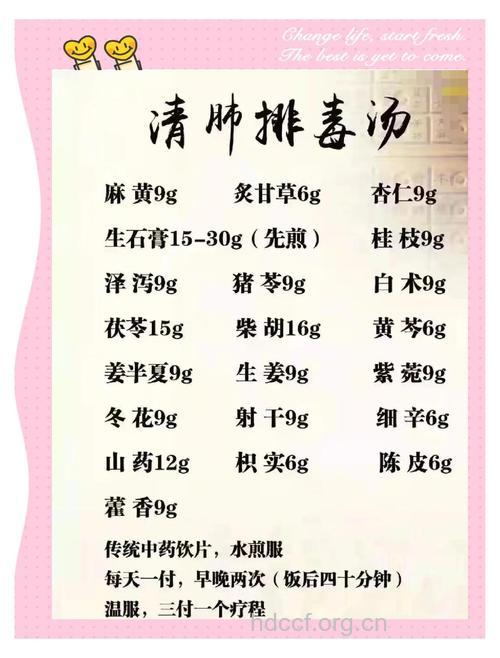 Change life, start fresh.
The best is yet to come.
清肺排毒汤
麻 黄9g 炙甘草6g 杏仁9g
生石膏15-30g（先煎） 桂 枝9g
泽 泻9g 猪 苓9g 白 术9g
茯苓15g 柴 胡16g 黄 芩6g
姜半夏9g 生 姜9g 紫 菀9g
冬 花9g 射 干9g 细 辛6g
山 药12g 枳 实6g 陈 皮6g
藿 香9g
传统中药饮片，水煎服
每天一付，早晚两次（饭后四十分钟）
温服，三付一个疗程
hdccf.org.cn